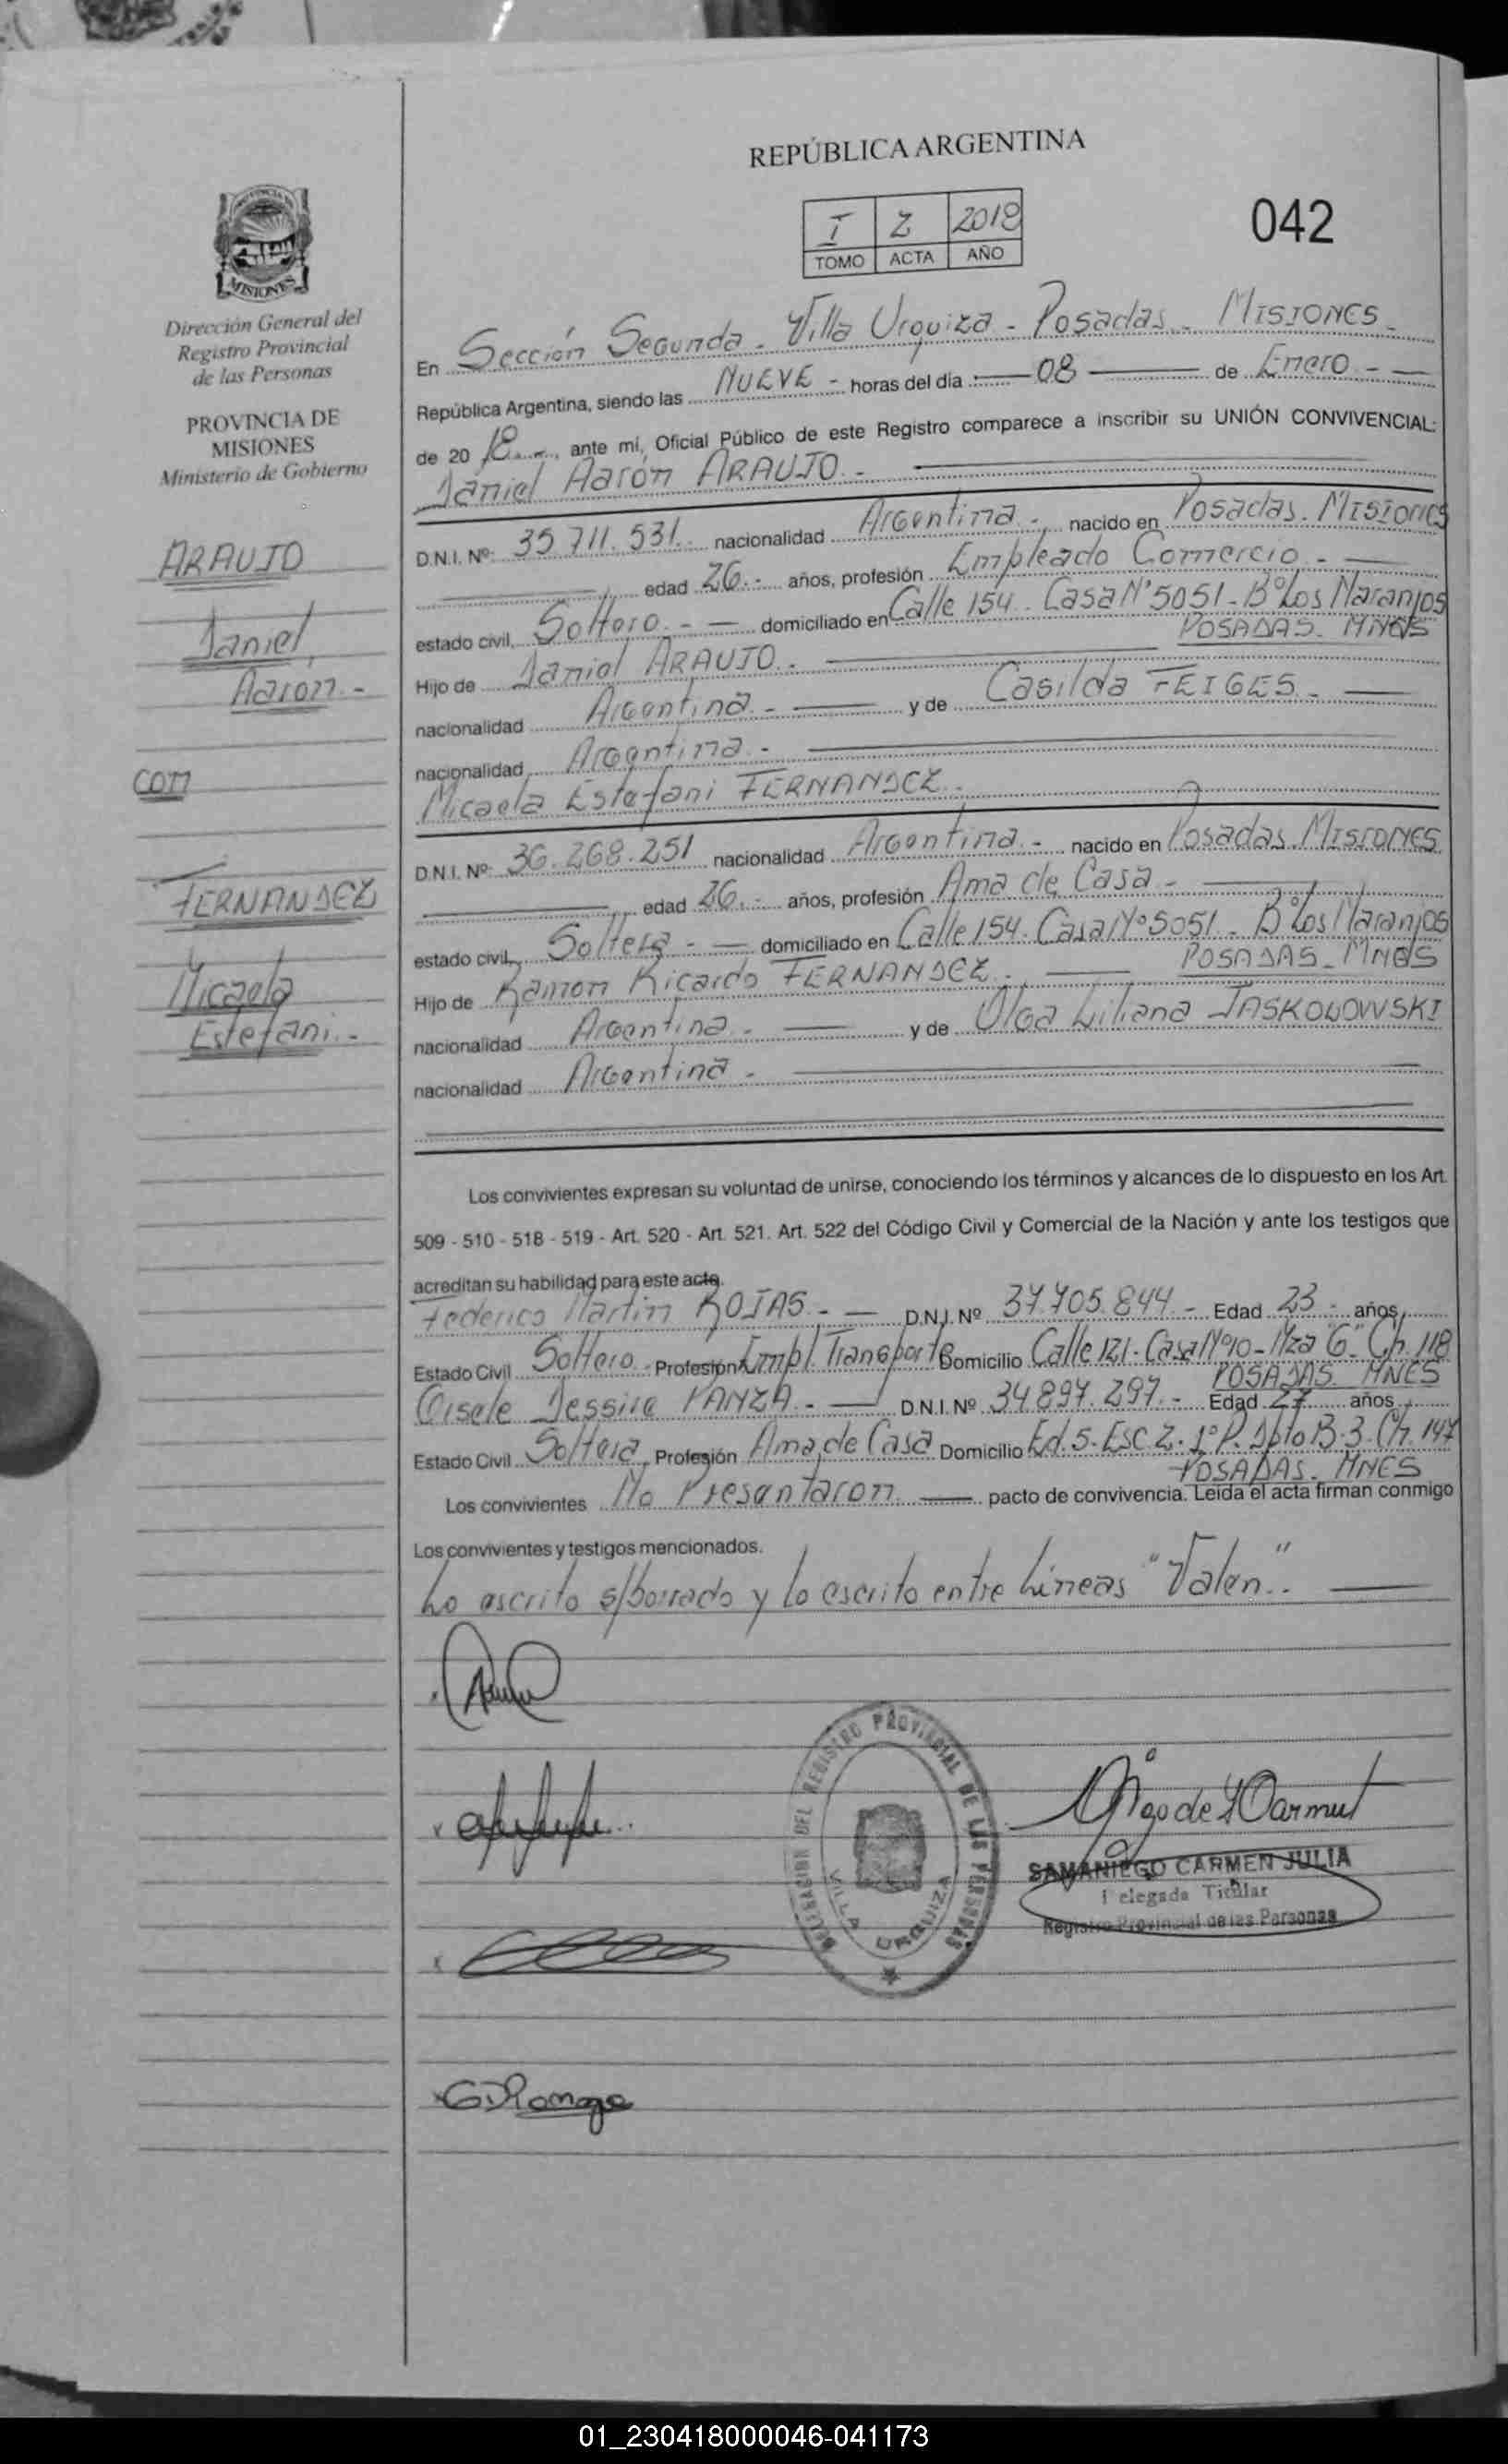 REPÚBLICA ARGENTINA
I 2 2018
TOMO ACTA AÑO
042
MISIONES
Dirección General del
Registro Provincial
de las Personas
PROVINCIA DE
MISIONES
Ministerio de Gobierno
ARAUJO
Daniel
Aaron.-
con
FERNANDEZ
Micaela
Estefani.-
En Sección Segunda - Villa Urquiza - Posadas - MISIONES -
República Argentina, siendo las NUEVE - horas del día 08 de Enero - -
de 20 18 , ante mí, Oficial Público de este Registro comparece a inscribir su UNIÓN CONVIVENCIAL:
Daniel Aarón ARAUJO.-
D.N.I. Nº: 35.711.531. nacionalidad Argentina - nacido en Posadas. MISIONES
edad 26.- años, profesión Empleado Comercio -
estado civil, Soltero - - domiciliado en Calle 154 - Casa Nº 5051 - Bº Los Naranjos
POSADAS - MNES
Hijo de Daniel ARAUJO -
nacionalidad Argentina - y de Casilda FEIGES -
nacionalidad Argentina -
Micaela Estefani FERNANDEZ -
D.N.I. Nº: 36.268.251 nacionalidad Argentina - nacido en Posadas. MISIONES
edad 26.- años, profesión Ama de Casa -
estado civil, Soltera - - domiciliado en Calle 154 - Casa Nº 5051 - Bº Los Naranjos
POSADAS - MNES
Hijo de Ramon Ricardo FERNANDEZ -
nacionalidad Argentina - y de Olga Liliana JASKOLOWSKI
nacionalidad Argentina -
Los convivientes expresan su voluntad de unirse, conociendo los términos y alcances de lo dispuesto en los Art.
509 - 510 - 518 - 519 - Art. 520 - Art. 521. Art. 522 del Código Civil y Comercial de la Nación y ante los testigos que
acreditan su habilidad para este acto.
Federico Martin ROJAS - - D.N.I. Nº 37.705.844 - Edad 23 - años,
Estado Civil Soltero - Profesión Empl. Transporte Domicilio Calle 121 - Casa Nº 10 - Mza "G" Ch. 118
POSADAS MNES
Gisele Jessica PANZA - D.N.I. Nº 34.897.297.- Edad 27 años,
Estado Civil Soltera, Profesión Ama de Casa Domicilio Ed. 5 - Esc. 2 - 1º P. Dpto B-3 - Ch. 147
POSADAS - MNES
Los convivientes No Presentaron pacto de convivencia. Leída el acta firman conmigo
Los convivientes y testigos mencionados.
Lo escrito s/borrado y lo escrito entre Lineas "Valen".-
DELEGACION DEL REGISTRO PROVINCIAL DE LAS PERSONAS
VILLA URQUIZA
SAMANIEGO CARMEN JULIA
Delegada Titular
Registro Provincial de las Personas
01_230418000046-041173